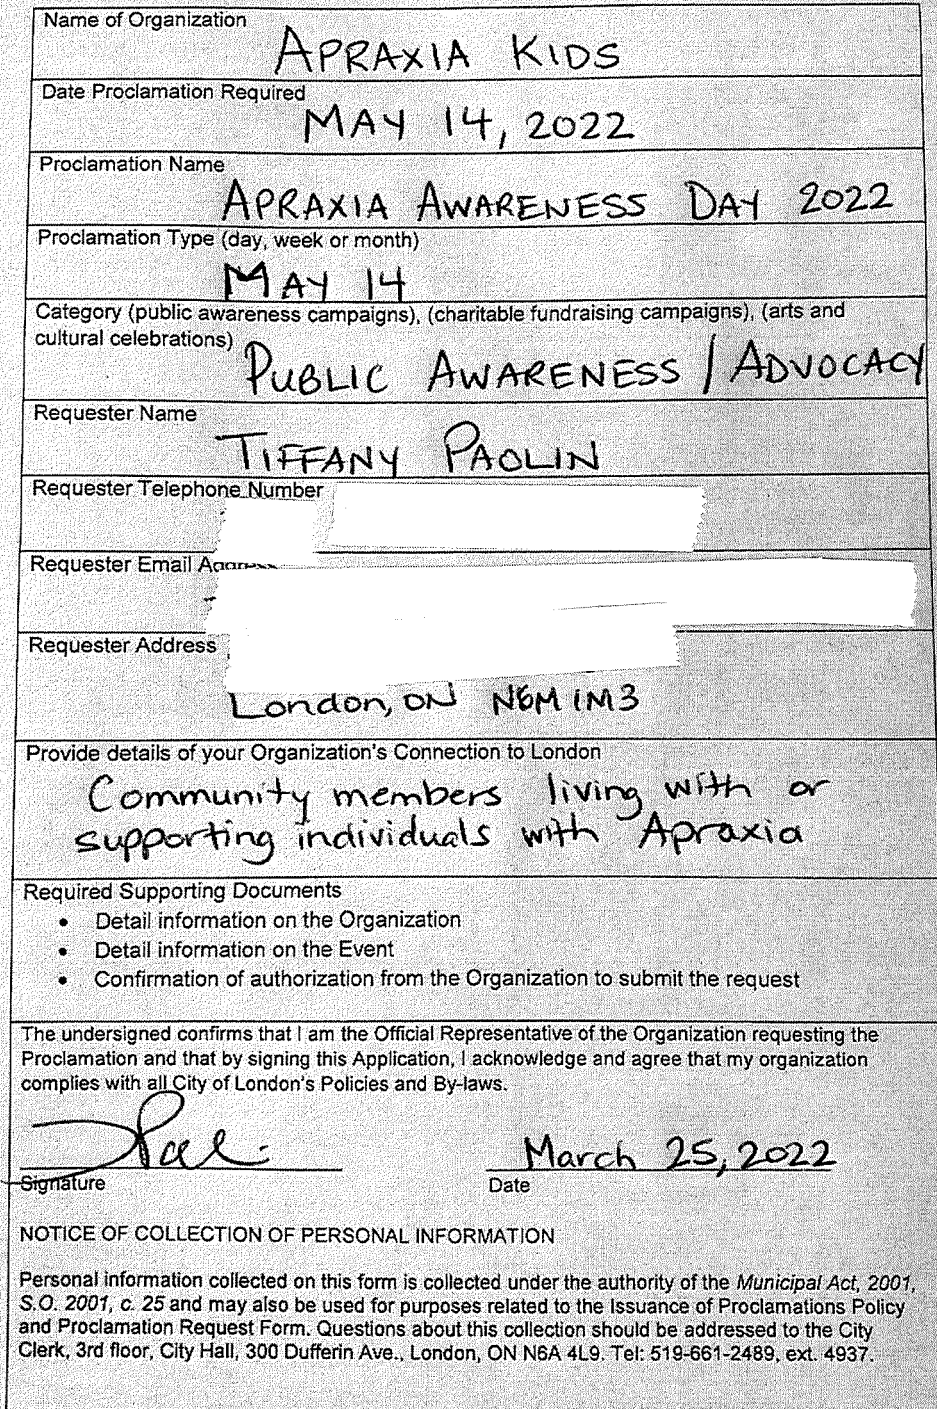 Name of Organization
APRAXIA KIDS
Date Proclamation Required
MAY 14, 2022
Proclamation Name
APRAXIA AWARENESS DAY 2022
Proclamation Type (day, week or month)
MAY 14
Category (public awareness campaigns), (charitable fundraising campaigns), (arts and
cultural celebrations)
PUBLIC AWARENESS / ADVOCACY
Requester Name
TIFFANY PAOLIN
Requester Telephone Number
Requester Email Address
Requester Address
London, ON N6M 1M3
Provide details of your Organization's Connection to London
Community members living with or
supporting individuals with Apraxia
Required Supporting Documents
• Detail information on the Organization
• Detail information on the Event
• Confirmation of authorization from the Organization to submit the request
The undersigned confirms that I am the Official Representative of the Organization requesting the
Proclamation and that by signing this Application, I acknowledge and agree that my organization
complies with all City of London's Policies and By-laws.
March 25, 2022
Signature
Date
NOTICE OF COLLECTION OF PERSONAL INFORMATION
Personal information collected on this form is collected under the authority of the Municipal Act, 2001,
S.O. 2001, c. 25 and may also be used for purposes related to the Issuance of Proclamations Policy
and Proclamation Request Form. Questions about this collection should be addressed to the City
Clerk, 3rd floor, City Hall, 300 Dufferin Ave., London, ON N6A 4L9. Tel: 519-661-2489, ext. 4937.